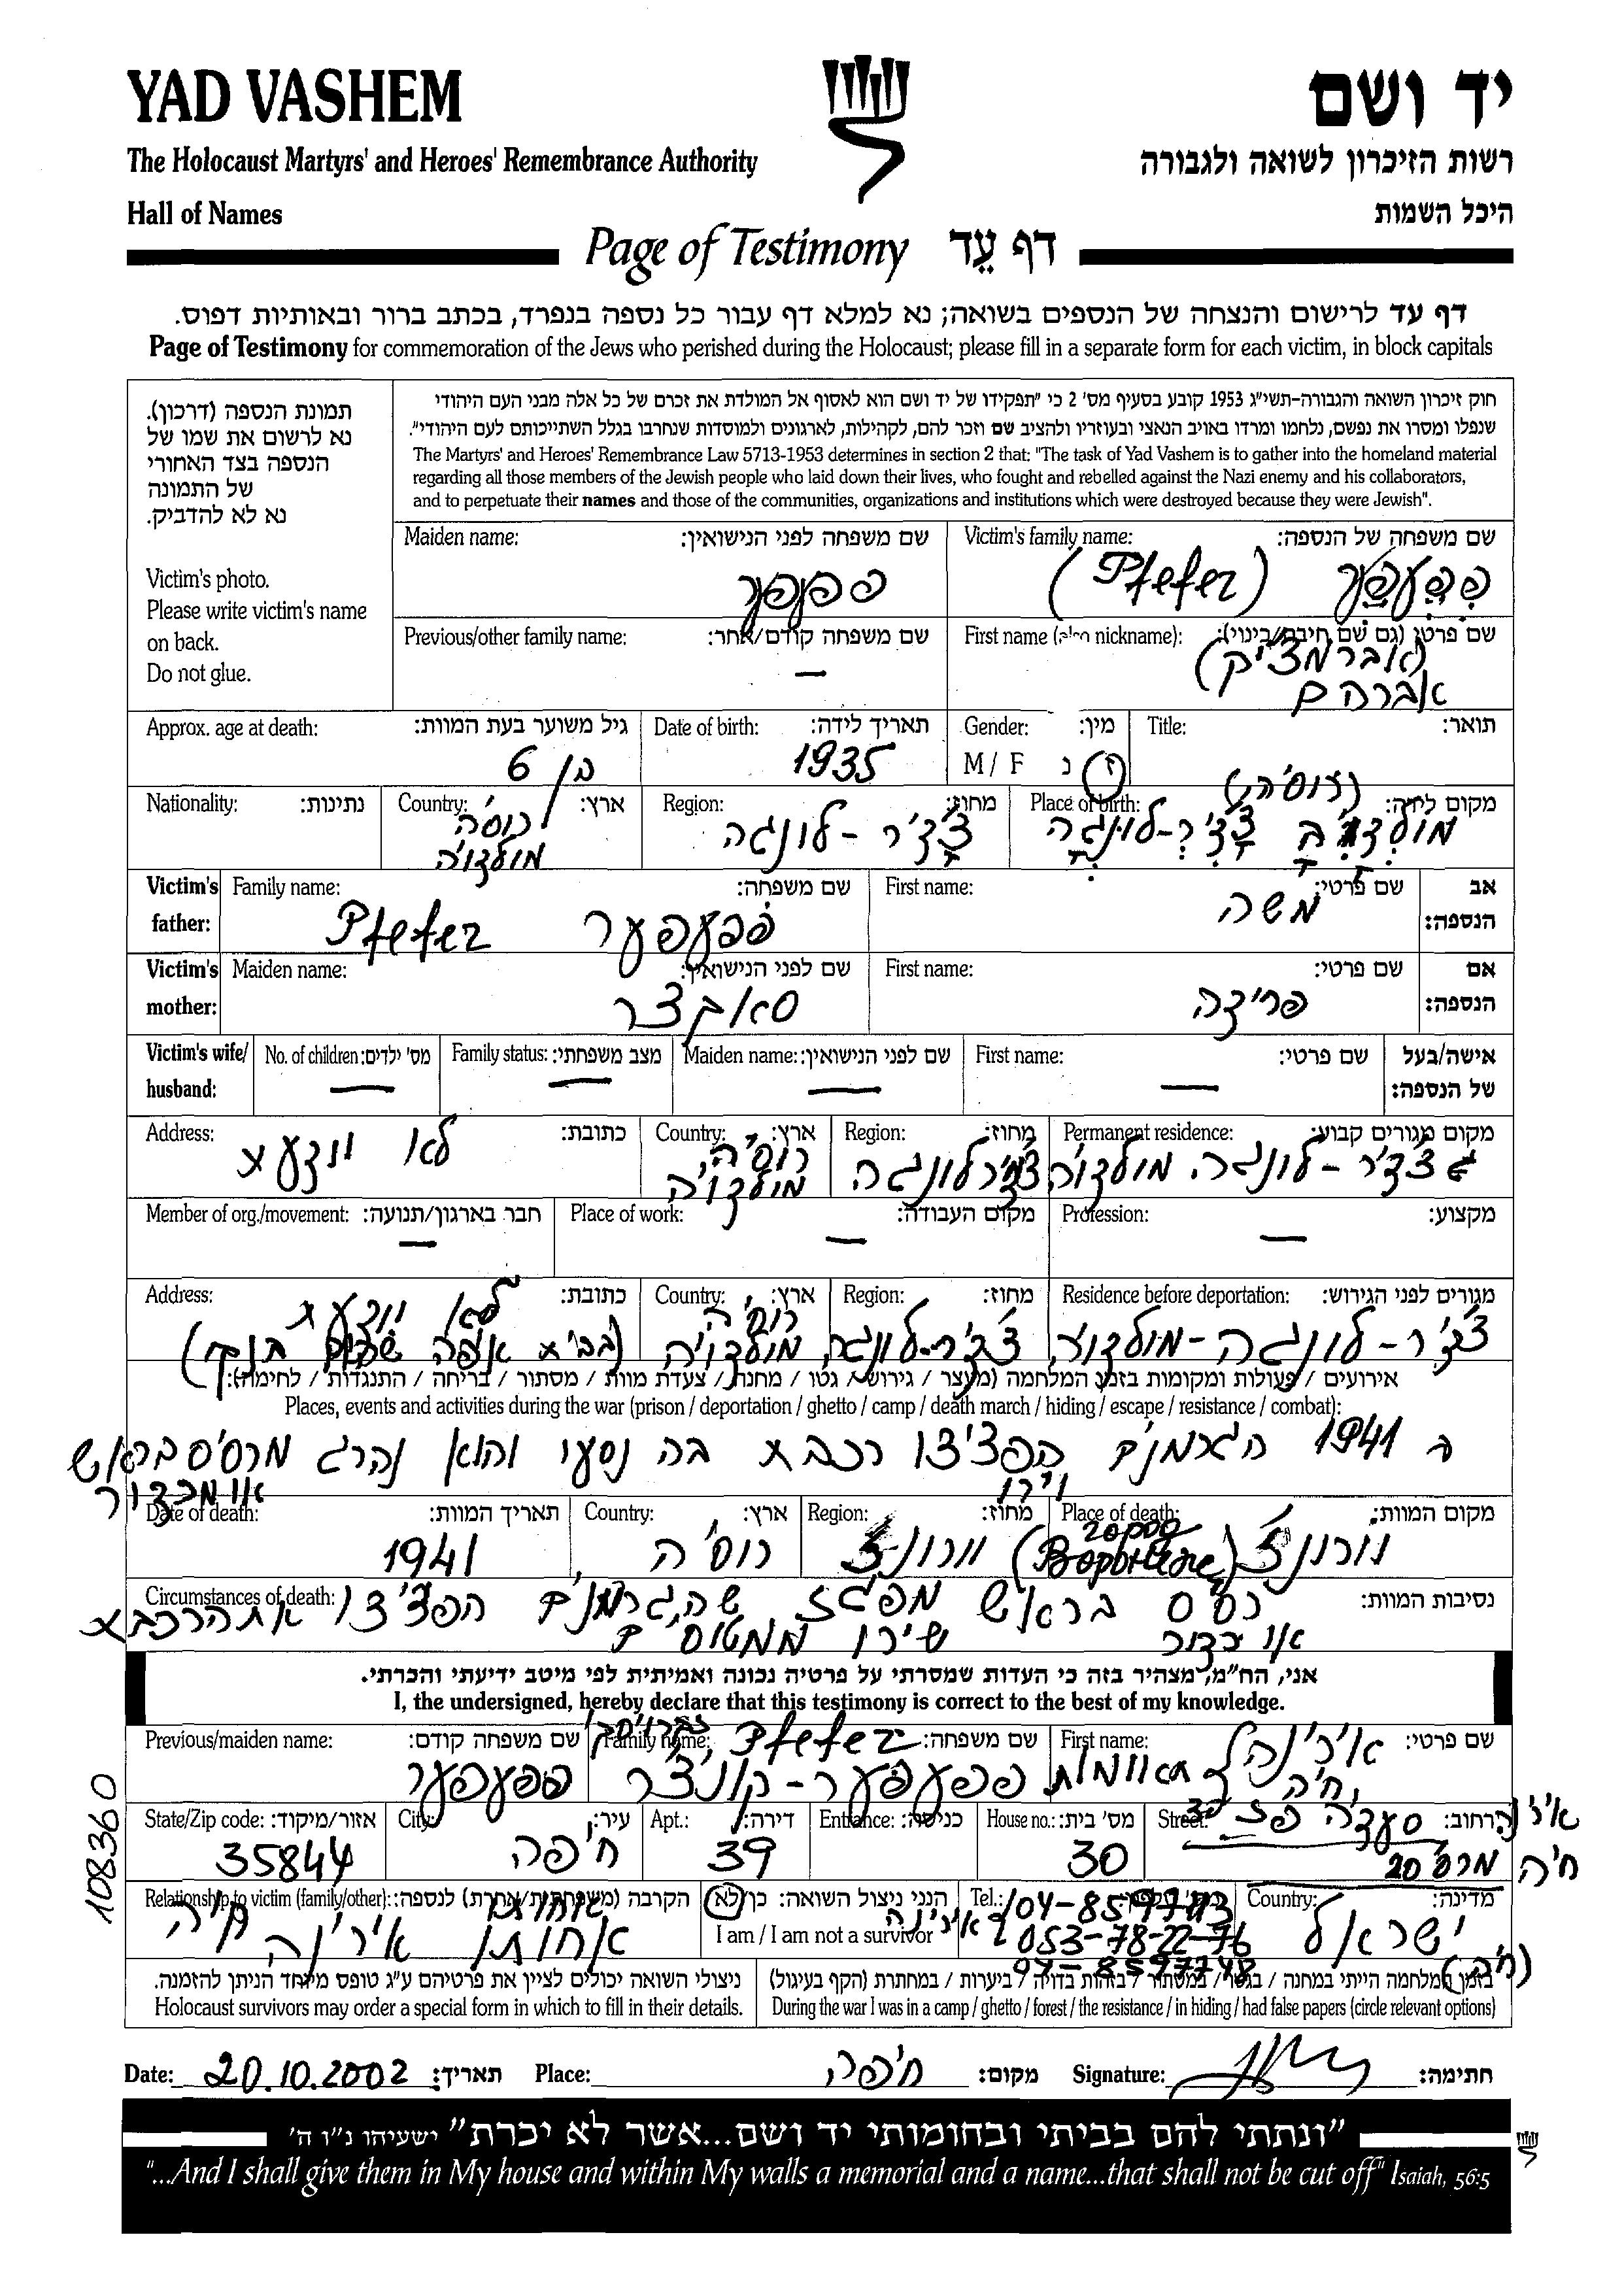 YAD VASHEM
יד ושם
The Holocaust Martyrs' and Heroes' Remembrance Authority
רשות הזיכרון לשואה ולגבורה
Hall of Names
היכל השמות
Page of Testimony דף עֵד
דף עד לרישום והנצחה של הנספים בשואה; נא למלא דף עבור כל נספה בנפרד, בכתב ברור ובאותיות דפוס.
Page of Testimony for commemoration of the Jews who perished during the Holocaust; please fill in a separate form for each victim, in block capitals
תמונת הנספה (דרכון).
נא לרשום את שמו של
הנספה בצד האחורי
של התמונה
נא לא להדביק.
Victim's photo.
Please write victim's name
on back.
Do not glue.
חוק זיכרון השואה והגבורה-תשי"ג 1953 קובע בסעיף מס' 2 כי "תפקידו של יד ושם הוא לאסוף אל המולדת את זכרם של כל אלה מבני העם היהודי
שנפלו ומסרו את נפשם, נלחמו ומרדו באויב הנאצי ובעוזריו ולהציב שם וזכר להם, לקהילות, לארגונים ולמוסדות שנחרבו בגלל השתייכותם לעם היהודי".
The Martyrs' and Heroes' Remembrance Law 5713-1953 determines in section 2 that: "The task of Yad Vashem is to gather into the homeland material
regarding all those members of the Jewish people who laid down their lives, who fought and rebelled against the Nazi enemy and his collaborators,
and to perpetuate their names and those of the communities, organizations and institutions which were destroyed because they were Jewish".
Victim's family name: שם משפחה של הנספה:
פפעפער (Pfefer)
Maiden name: שם משפחה לפני הנישואין:
פפעפער
First name (also nickname): שם פרטי (גם שם חיבה/כינוי):
(אברמציק)
אברהם
Previous/other family name: שם משפחה קודם/אחר:
—
Title: תואר:
Gender: מין:
M / F ז נ
Date of birth: תאריך לידה:
1935
Approx. age at death: גיל משוער בעת המוות:
בן 6
Place of birth: מקום לידה:
(רוסיה)
מולדביה צ'צ'ר-לונגה
Region: מחוז:
צ'צ'ר - לונגה
Country: ארץ:
רוסיה
מולדויה
Nationality: נתינות:
אב הנספה:
Victim's father:
First name: שם פרטי:
משה
Family name: שם משפחה:
פפעפער Pfefer
אם הנספה:
Victim's mother:
First name: שם פרטי:
פרידה
Maiden name: שם לפני הנישואין:
אישה/בעל של הנספה:
Victim's wife/ husband:
First name: שם פרטי:
—
Maiden name: שם לפני הנישואין:
—
Family status: מצב משפחתי:
—
No. of children: מס' ילדים:
—
Permanent residence: מקום מגורים קבוע:
צ'צ'ר - לונגה מולדויה
Region: מחוז:
צ'צ'ר לונגה
Country: ארץ:
רוסיה
מולדויה
Address: כתובת:
לא יודעת
Profession: מקצוע:
—
Place of work: מקום העבודה:
—
Member of org./movement: חבר בארגון/תנועה:
—
Residence before deportation: מגורים לפני הגירוש:
צ'צ'ר - לונגה - מולדויה
Region: מחוז:
צ'צ'ר-לונגה
Country: ארץ:
רוסיה
מולדויה
Address: כתובת:
לא יודעת
אירועים / פעולות ומקומות בזמן המלחמה (מעצר / גירוש / גטו / מחנה / צעדת מוות / מסתור / בריחה / התנגדות / לחימה):
Places, events and activities during the war (prison / deportation / ghetto / camp / death march / hiding / escape / resistance / combat):
ב 1941 הגרמנים הפציצו רכבת בה נסעו והוא נהרג מרסיס בראש
וירו או מכדור
Place of death: מקום המוות:
וורונז
Region: מחוז:
וורונז
Country: ארץ:
רוסיה
Date of death: תאריך המוות:
1941
Circumstances of death: נסיבות המוות:
רסיס בראש מפגז שהגרמנים הפציצו את הרכבת
או כדור שירו ממטוסים
אני, הח"מ, מצהיר בזה כי העדות שמסרתי על פרטיה נכונה ואמיתית לפי מיטב ידיעתי והכרתי.
I, the undersigned, hereby declare that this testimony is correct to the best of my knowledge.
First name: שם פרטי:
Family name: שם משפחה:
Pfefer
Previous/maiden name: שם משפחה קודם:
פפעפער
Street: רחוב:
סעדיה פז
House no.: מס' בית:
30
Entrance: כניסה:
Apt.: דירה:
39
City: עיר:
חיפה
State/Zip code: אזור/מיקוד:
35844
Country: מדינה:
ישראל
Tel.: מס' טלפון:
053-78-22-76
04-8597748
הנני ניצול השואה: כן/לא
I am / I am not a survivor
Relationship to victim (family/other): הקרבה (משפחתית/אחרת) לנספה:
אחותו אירינה
בזמן המלחמה הייתי במחנה / בגטו / במסתור / בזהות בדויה / ביערות / במחתרת (הקף בעיגול)
During the war I was in a camp / ghetto / forest / the resistance / in hiding / had false papers (circle relevant options)
ניצולי השואה יכולים לציין את פרטיהם ע"ג טופס מיוחד הניתן להזמנה.
Holocaust survivors may order a special form in which to fill in their details.
108360
Date: 20.10.2002 תאריך: Place: חיפה מקום: Signature: חתימה:
"ונתתי להם בביתי ובחומותי יד ושם...אשר לא יכרת" ישעיהו נ"ו ה'
"...And I shall give them in My house and within My walls a memorial and a name...that shall not be cut off" Isaiah, 56:5